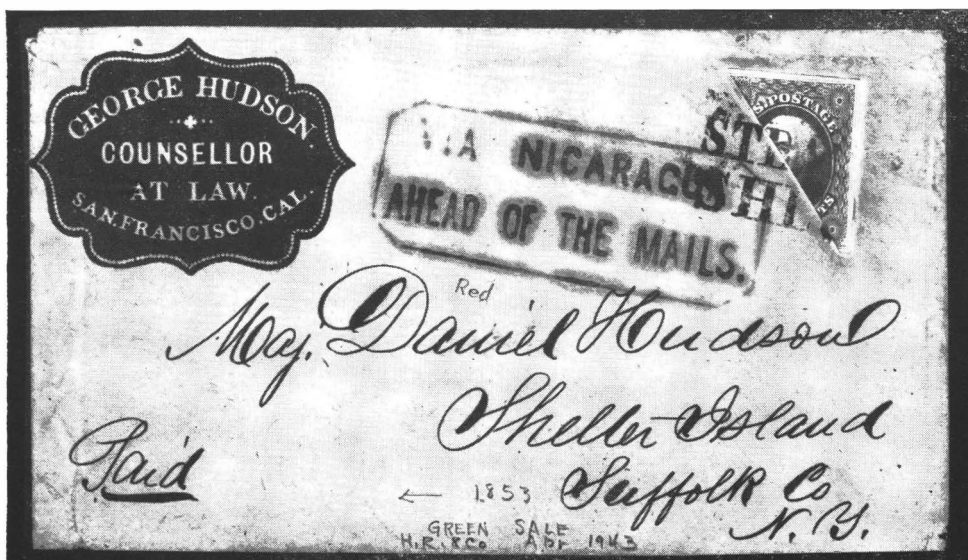 GEORGE HUDSON.
COUNSELLOR
AT LAW.
SAN.FRANCISCO.CAL.
VIA NICARAGUA
AHEAD OF THE MAILS.
STE
SHI
S. POSTAGE
TS
Red
Maj. Daniel Hudson
Shelter Island
Suffolk Co
N. Y.
Paid
← 1853
GREEN SALE
H.R. & Co Apr 1943